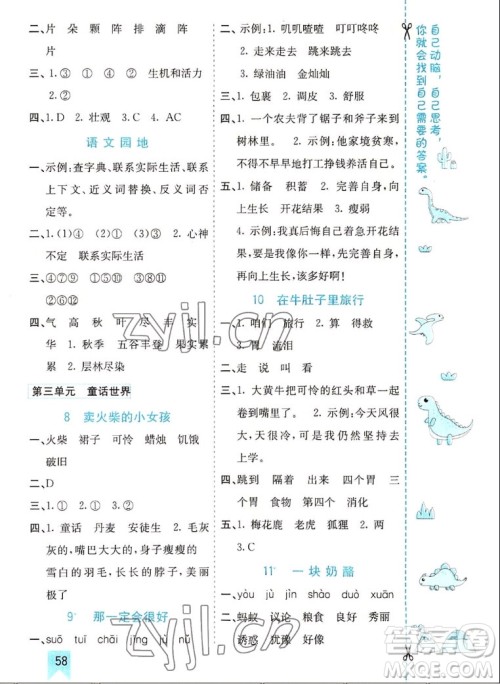 二、片 朵 颗 阵 排 滴 阵
片
三、1.①③ ②④ 生机和活力
2.②
四、1.D 2.壮观 3.C 4.AC
语文园地
一、示例:查字典、联系实际生活、联
系上下文、近义词替换、反义词否
定。
二、1.①④⑤ ②③ 2.心神
不定 联系实际生活
三、④⑦⑨ ①⑤⑩ ③⑧⑪
②⑥⑫
四、气 高 秋 叶 尽 丰 实
华 1.秋高气爽 五谷丰登 果实累
累 2.层林尽染
第三单元 童话世界
8 卖火柴的小女孩
一、火柴 裙子 可怜 蜡烛 饥饿
破旧
二、D
三、1.① ② 2.① ②
四、1.童话 丹麦 安徒生 2.毛灰
灰的,嘴巴大大的,身子瘦瘦的
雪白的羽毛,长长的脖子
9* 那一定会很好
一、suō tuī chāi jīng jǔ nǔ
58
二、示例:1.叽叽喳喳 叮叮咚咚
2.走来走去 跳来跳去
3.绿油油 金灿灿
三、1.包裹 2.调皮 3.舒服
四、1.一个农夫背了锯子和斧子来到
树林里。 2.示例:他家境贫寒,
不得不到各地打工挣钱养活自己。
五、1.储备 积蓄 2.完善自身,向
上生长 开花结果 3.瘦弱
4.示例:我真后悔没有在当初和
你一起努力向上生长,完善自
身。看你现在开花结果的样子,
该多好啊!
10 在牛肚子里旅行
一、1.咱们 旅行 2.答应 骨头
胃 流泪
二、走 说 叫 看
三、示例:大黄牛把可怜的红头和草
一起卷到嘴里去了。 天很冷,
今天很冷,大家都穿上了厚衣服。
四、跳到 隔着 出来 四个 胃 三
个 胃 食物 贮藏 一个 胃
五、1.梅花鹿 老虎 狐狸 2.两
3.C
11* 一块奶酪
一、yòu jù jìn shào zhà qiáng
二、蚂蚁 议论 跟前 奶酪 要是
诱惑 犹豫 好像
自己动脑,自己思考,
你就会找到自己需要的答案。
zyjl.cn
zyjl.cn
答案圈
MXQE.COM